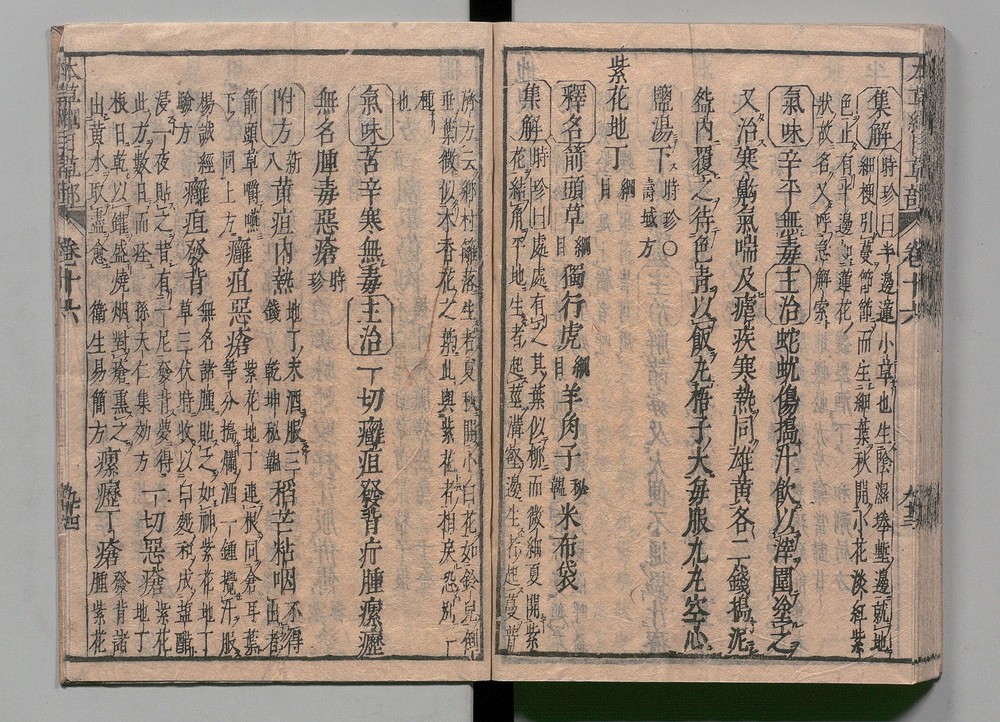 集解 時珍曰半邊蓮小草也生陰濕塍塹邊就地
細梗引蔓節節而生細葉秋開小花淡紅紫
色止有半邊如蓮花
狀故名又呼急解索
氣味 辛平無毒 主治 蛇虺傷搗汁飲以滓圍塗之
又治寒齁氣喘及瘧疾寒熱同雄黃各二錢搗泥
盌內覆之待色青以飯丸梧子大每服九丸空心
鹽湯下 時珍○
壽域方
紫花地丁 綱目
釋名 箭頭草 綱目 獨行虎 綱目 羊肉子 秘韞 米布袋
集解 時珍曰處處有之其葉似柳而微細夏開紫
花結角平地生者起莖溝壑邊生者起蔓普
濟方云鄉村籬落生者夏秋開小白花如鈴兒倒
垂葉微似木香花之葉此與紫花者相戾恐別一
種
也
氣味 苦辛寒無毒 主治 一切癰疽發背疔腫瘰癧
無名腫毒惡瘡 時珍
附方 新八 黃疸內熱 地丁末酒服三錢 乾坤秘韞 稻芒粘咽 不得出者
箭頭草嚼嚥
下 同上方 癰疽惡瘡 紫花地丁連根同蒼耳葉等分搗爛酒一鍾攪汁服
楊誠經
驗方 癰疽發背 無名諸腫貼之如神紫花地丁草三伏時收以白麪和成鹽醋
浸一夜貼之昔有一尼發背夢得
此方數日而痊 孫天仁集效方 一切惡瘡 紫花地丁
根日乾以罐盛燒烟對瘡熏之
出黃水取盡愈 衛生易簡方 瘰癧丁瘡 發背諸腫紫花
本草綱目草部 卷十六 九十三
本草綱目草部 卷十六 九十四